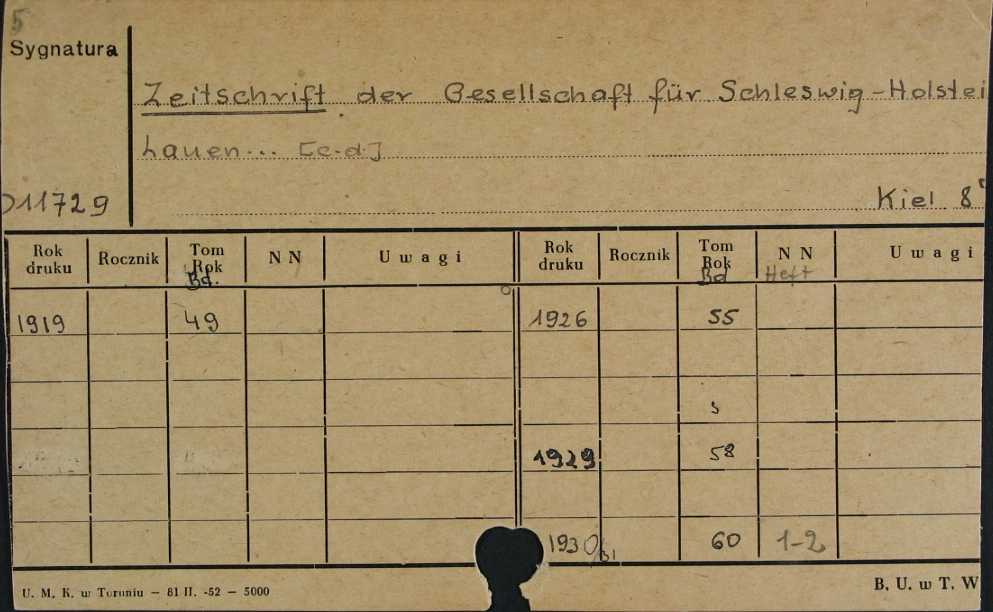 5
Sygnatura
Zeitschrift der Gesellschaft für Schleswig-Holstei
Lauen... [c.d.]
D11729
Kiel 8°
Rok druku Rocznik Tom Rok Bd. N N Uwagi Rok druku Rocznik Tom Rok Bd N N Heft Uwagi
1919 49 1926 55
1929 58
1930/31 60 1-2
U. M. K. w Toruniu — 81 II. -52 — 5000
B. U. w T. W